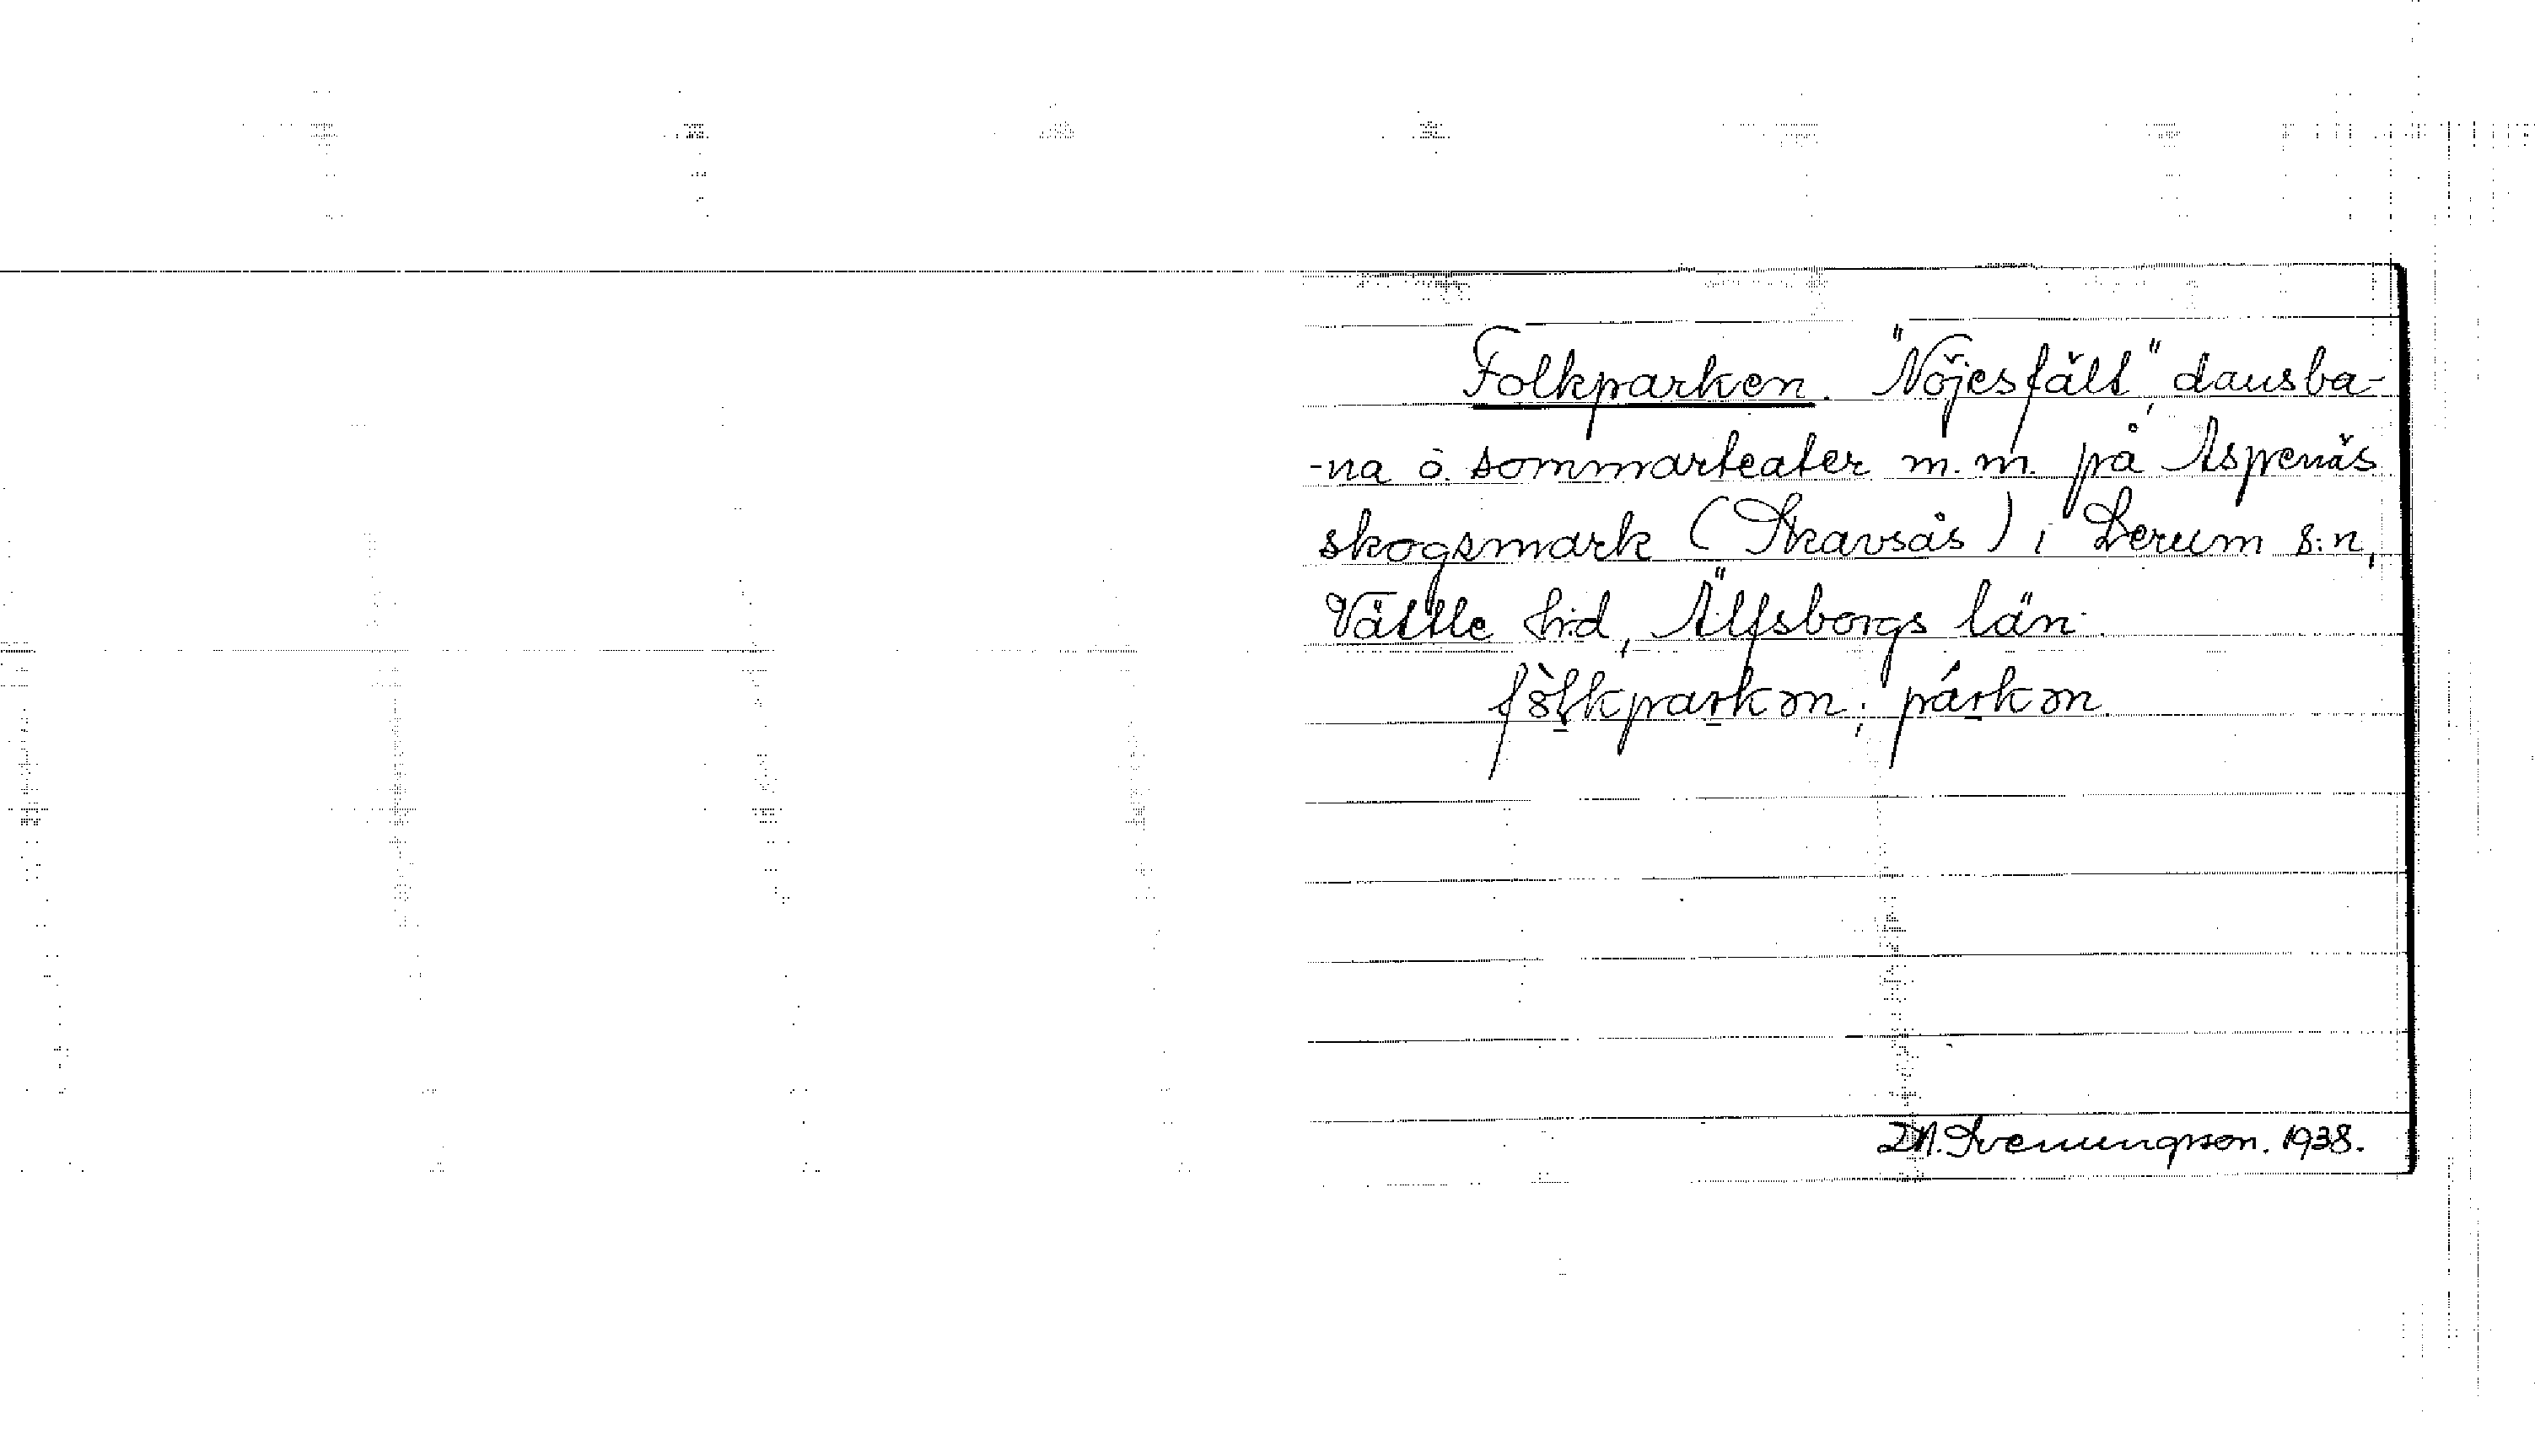 Folkparken. "Nöjesfält", dansba-
-na o. sommarteater m.m. på Aspenäs
skogsmark (Skavsås) i Lerum s:n,
Vättle hd, Älfsborgs län.
fòlkparkən; párkən
D.A. Svenungsson. 1938.